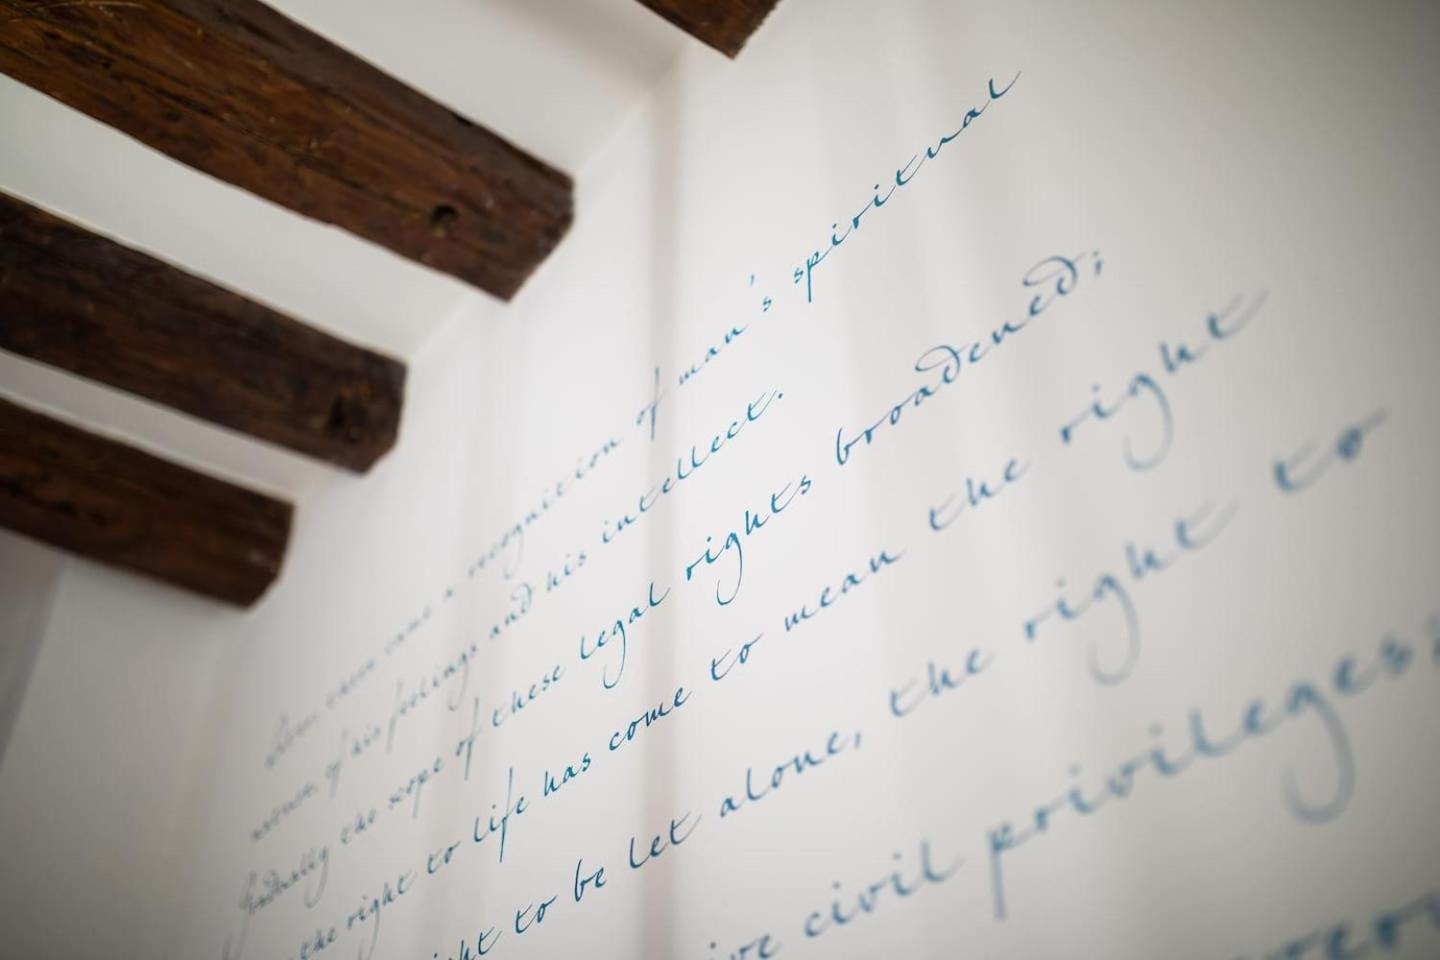 came a recognition of man's spiritual
nature, of his feelings and his intellect.
Gradually the scope of these legal rights broadened;
the right to life has come to mean the right
to be let alone, the right to
civil privileges;